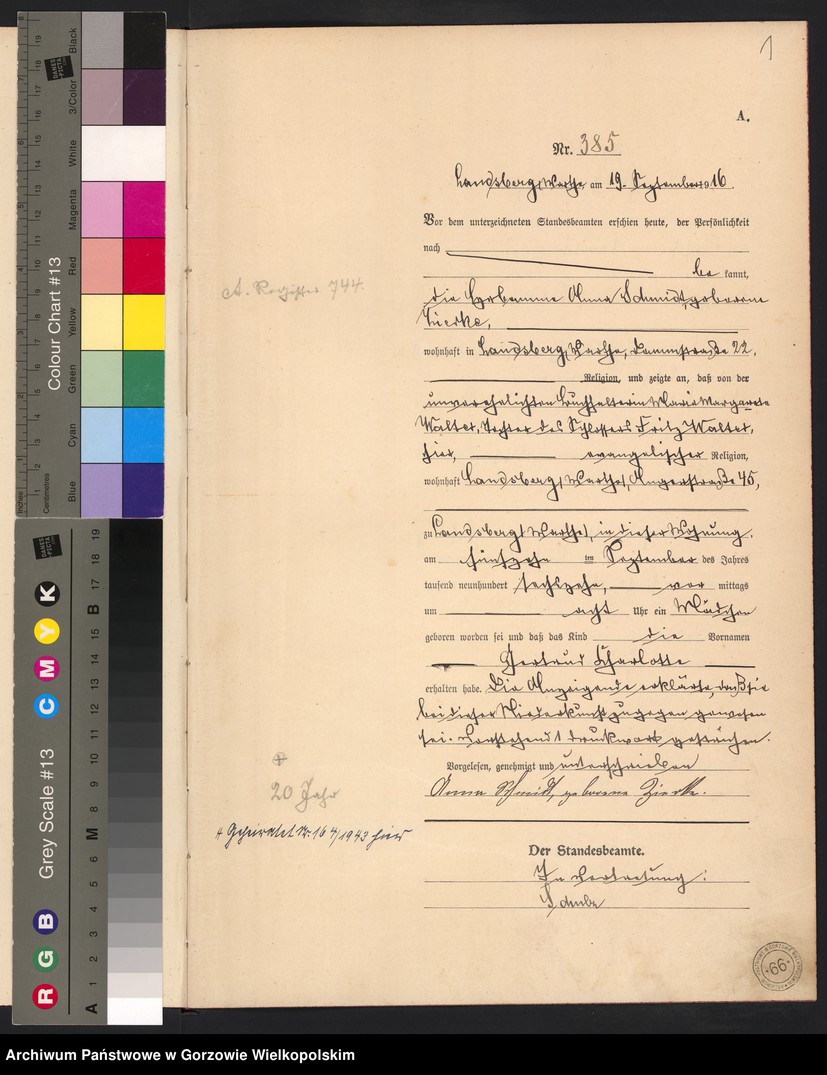 1
A.
Nr. 385
Landsberg, Warthe, am 19. September 1916.
Vor dem unterzeichneten Standesbeamten erschien heute, der Persönlichkeit
nach
be kannt,
die Hebamme Anna Schmidt, geborene
Zierke,
wohnhaft in Landsberg, Warthe, Dammstraße 22,
Religion, und zeigte an, daß von der
unverehelichten Buchhalterin Marie Margarete
Walter, Tochter des Schlossers Fritz Walter,
hier, evangelischer Religion,
wohnhaft Landsberg, Warthe, Angerstraße 45,
zu Landsberg, Warthe, in dieser Wohnung,
am fünfzehn ten September des Jahres
tausend neunhundert sechszehn, vor mittags
um acht Uhr ein Mädchen
geboren worden sei und daß das Kind die Vornamen
Gertrud Charlotte
erhalten habe. Die Anzeigende erklärte, daß sie
bei dieser Niederkunft zugegen gewesen
sei. Vorstehend 1 Druckwort gestrichen.
Vorgelesen, genehmigt und unterschrieben
Anna Schmidt, geborene Zierke.
Der Standesbeamte.
In Vertretung:
A. Register 744.
20 Jahr
Geheiratet Nr. 164/1943 hier
66
Inches
Centimetres
Colour Chart #13
Blue
Cyan
Green
Yellow
Red
Magenta
White
3/Color
Black
DANES
-PICTA
.COM
R G B
Grey Scale #13
C M Y K
A 1 2 3 4 5 6 M 8 9 10 11 12 13 14 15 B 17 18 19
Archiwum Państwowe w Gorzowie Wielkopolskim